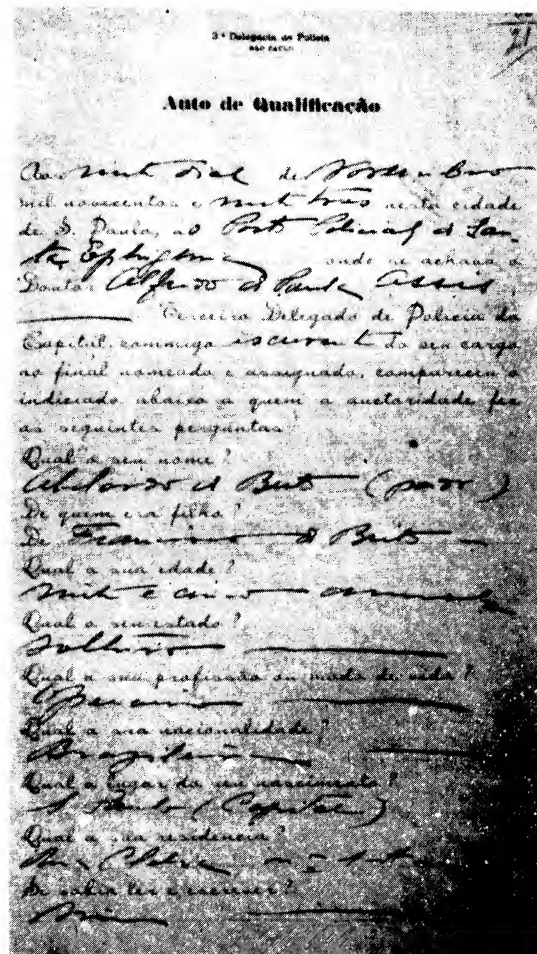 21
3ª Delegacia de Policia
SÃO PAULO
Auto de Qualificação
Aos vinte dias de Novembro
mil novecentos e vinte tres nesta cidade
de S. Paulo, ao Posto Policial de San-
ta Ephigenia onde se achava o
Doutor Alfredo de Paula Assis,
Terceiro Delegado de Policia da
Capital, commigo escrevente do seu cargo
ao final nomeado e assignado, compareceu o
indiciado abaixo a quem a auctoridade fez
as seguintes perguntas
Qual o seu nome?
de Brito
De quem era filho?
De Francisco de Brito
Qual a sua idade?
vinte e cinco annos
Qual o seu estado?
Solteiro
Qual a sua profissão ou modo de vida?
Operario
Qual a sua nacionalidade?
Brazileira
Qual o lugar do seu nascimento?
S. Paulo (Capital)
Qual a sua residencia?
Se sabia ler e escrever?
Sim